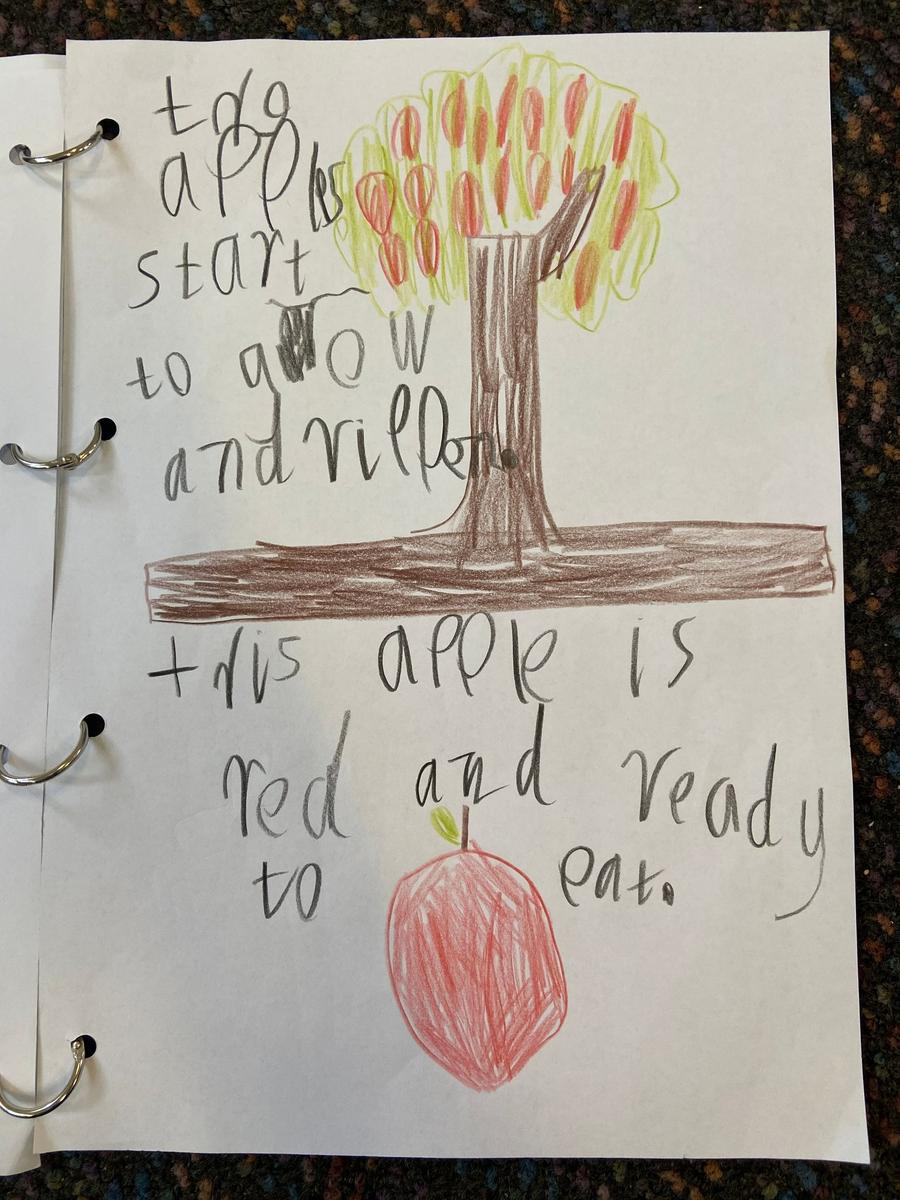 the
apples
start
to grow
and rippen.
this apple is
red and ready
to eat.